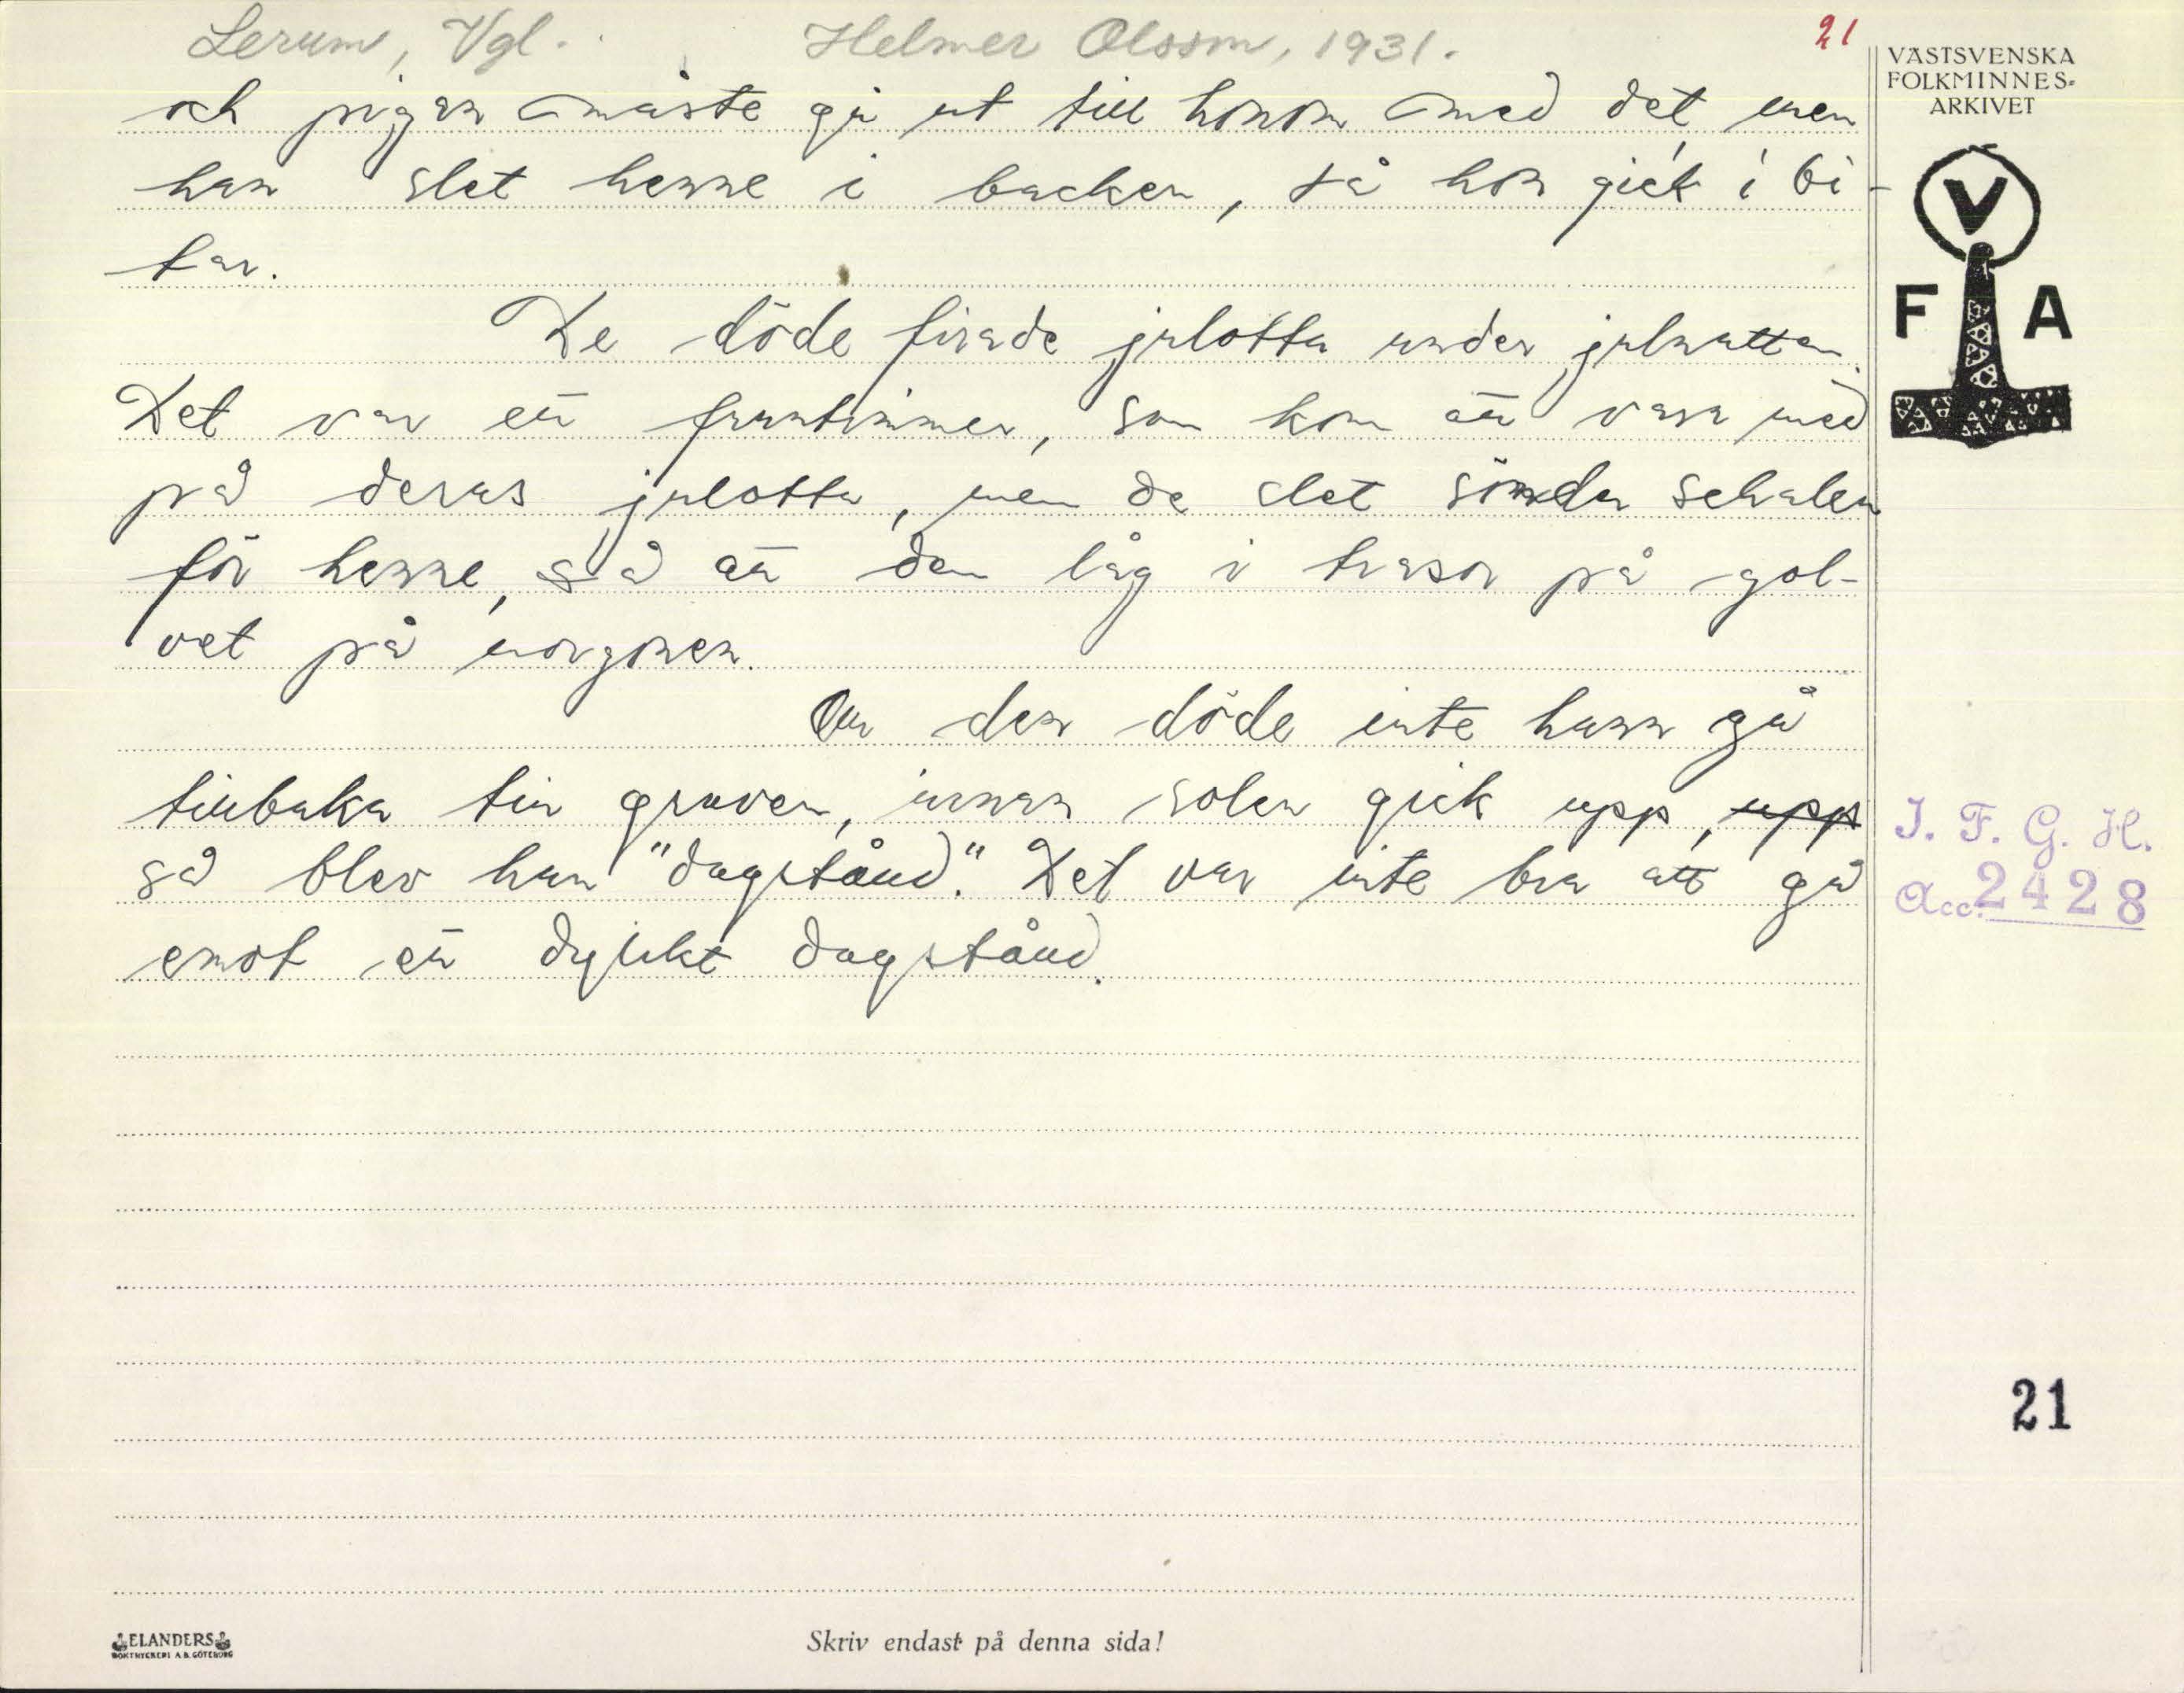 Lerum, Vgl. Helmer Olsson, 1931. 21
VÄSTSVENSKA
FOLKMINNES-
ARKIVET
och pigan måste gå ut till honom med det, men
han slet henne i backen, så hon gick i bi-
tar.
V
F A
De döde firade julotta under julnatten.
Det var ett fruntimmer, som kom att vara med
på deras julotta, men de slet sönder schalen
för henne, så att den låg i trasor på gol-
vet på morgonen.
Om den döde inte hann gå
tillbaka till graven, innan solen gick upp, upp
så blev han "dagstånd". Det var inte bra att gå
emot ett dylikt dagstånd.
I. F. G. H.
Acc. 2428
21
ELANDERS
BOKTRYCKERI A.B. GÖTEBORG
Skriv endast på denna sida!